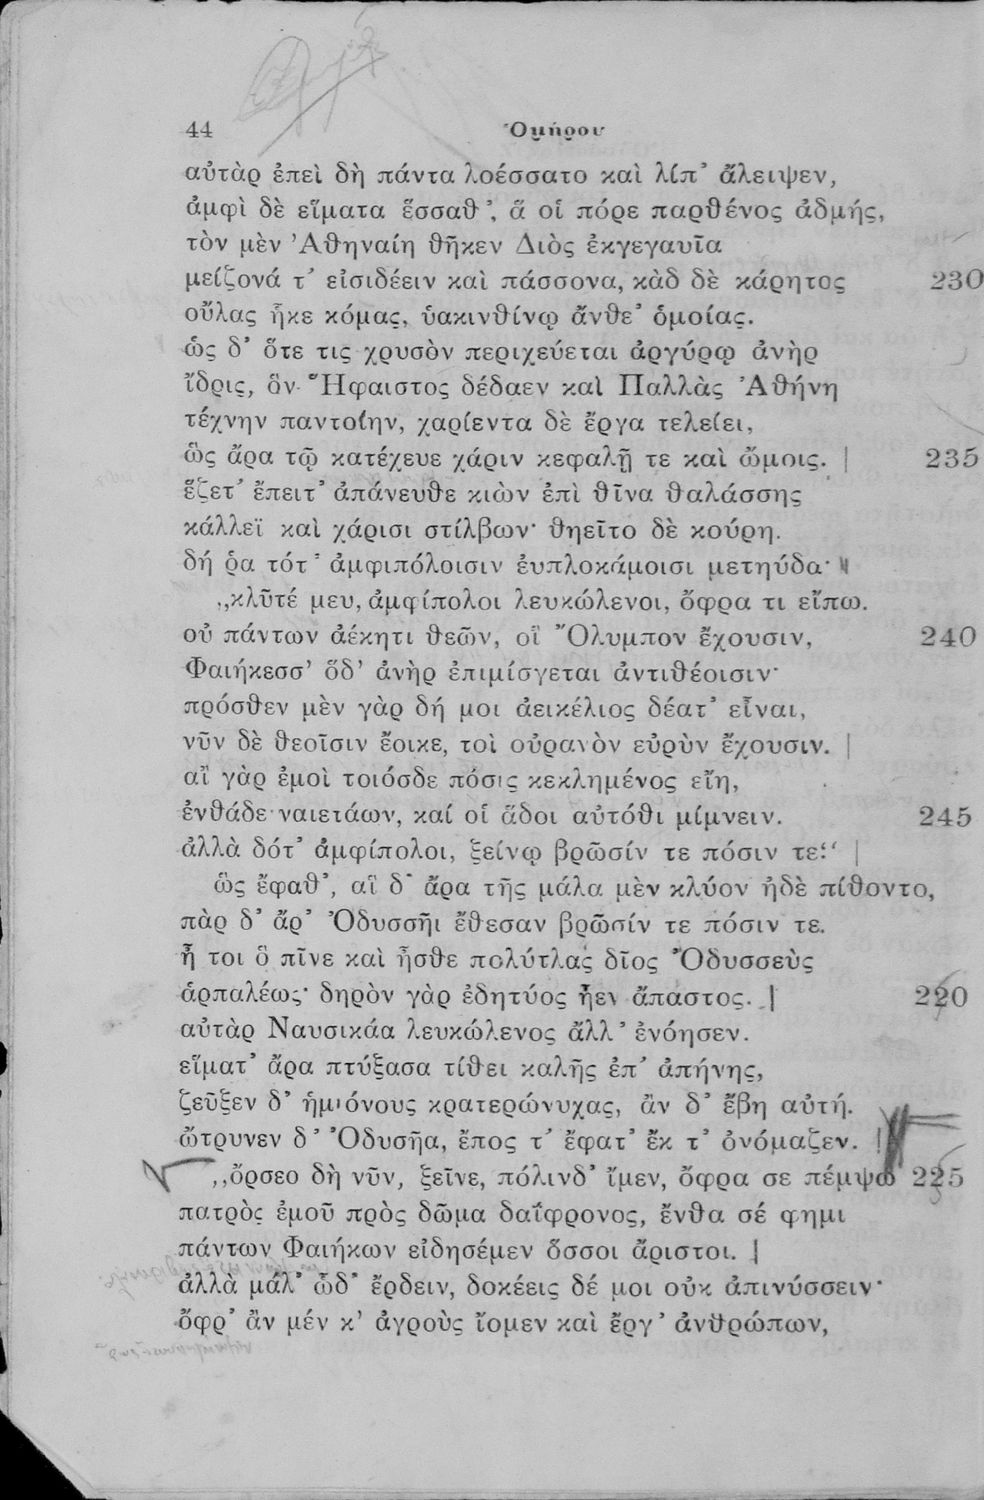 44 Ὁμήρου
αὐτὰρ ἐπεὶ δὴ πάντα λοέσσατο καὶ λίπ’ ἄλειψεν,
ἀμφὶ δὲ εἵματα ἕσσαθ’, ἅ οἱ πόρε παρθένος ἀδμής,
τὸν μὲν Ἀθηναίη θῆκεν Διὸς ἐκγεγαυῖα
μείζονά τ’ εἰσιδέειν καὶ πάσσονα, κὰδ δὲ κάρητος 230
οὔλας ἧκε κόμας, ὑακινθίνῳ ἄνθε’ ὁμοίας.
ὡς δ’ ὅτε τις χρυσὸν περιχεύεται ἀργύρῳ ἀνὴρ
ἴδρις, ὃν Ἥφαιστος δέδαεν καὶ Παλλὰς Ἀθήνη
τέχνην παντοίην, χαρίεντα δὲ ἔργα τελείει,
ὣς ἄρα τῷ κατέχευε χάριν κεφαλῇ τε καὶ ὤμοις. | 235
ἕζετ’ ἔπειτ’ ἀπάνευθε κιὼν ἐπὶ θῖνα θαλάσσης
κάλλεϊ καὶ χάρισι στίλβων· θηεῖτο δὲ κούρη.
δή ῥα τότ’ ἀμφιπόλοισιν ἐυπλοκάμοισι μετηύδα·
„κλῦτέ μευ, ἀμφίπολοι λευκώλενοι, ὄφρα τι εἴπω.
οὐ πάντων ἀέκητι θεῶν, οἳ Ὄλυμπον ἔχουσιν, 240
Φαιήκεσσ’ ὅδ’ ἀνὴρ ἐπιμίσγεται ἀντιθέοισιν·
πρόσθεν μὲν γὰρ δή μοι ἀεικέλιος δέατ’ εἶναι,
νῦν δὲ θεοῖσιν ἔοικε, τοὶ οὐρανὸν εὐρὺν ἔχουσιν. |
αἲ γὰρ ἐμοὶ τοιόσδε πόσις κεκλημένος εἴη,
ἐνθάδε ναιετάων, καί οἱ ἅδοι αὐτόθι μίμνειν. 245
ἀλλὰ δότ’ ἀμφίπολοι, ξείνῳ βρῶσίν τε πόσιν τε.“ |
ὣς ἔφαθ’, αἳ δ’ ἄρα τῆς μάλα μὲν κλύον ἠδὲ πίθοντο,
πὰρ δ’ ἄρ’ Ὀδυσσῆι ἔθεσαν βρῶσίν τε πόσιν τε.
ἦ τοι ὃ πῖνε καὶ ἦσθε πολύτλας δῖος Ὀδυσσεὺς
ἁρπαλέως· δηρὸν γὰρ ἐδητύος ἦεν ἄπαστος. | 220
αὐτὰρ Ναυσικάα λευκώλενος ἄλλ’ ἐνόησεν.
εἵματ’ ἄρα πτύξασα τίθει καλῆς ἐπ’ ἀπήνης,
ζεῦξεν δ’ ἡμιόνους κρατερώνυχας, ἂν δ’ ἔβη αὐτή.
ὤτρυνεν δ’ Ὀδυσῆα, ἔπος τ’ ἔφατ’ ἔκ τ’ ὀνόμαζεν. |
„ὄρσεο δὴ νῦν, ξεῖνε, πόλινδ’ ἴμεν, ὄφρα σε πέμψω 225
πατρὸς ἐμοῦ πρὸς δῶμα δαΐφρονος, ἔνθα σέ φημι
πάντων Φαιήκων εἰδησέμεν ὅσσοι ἄριστοι. |
ἀλλὰ μάλ’ ὧδ’ ἔρδειν, δοκέεις δέ μοι οὐκ ἀπινύσσειν·
ὄφρ’ ἂν μέν κ’ ἀγροὺς ἴομεν καὶ ἔργ’ ἀνθρώπων,